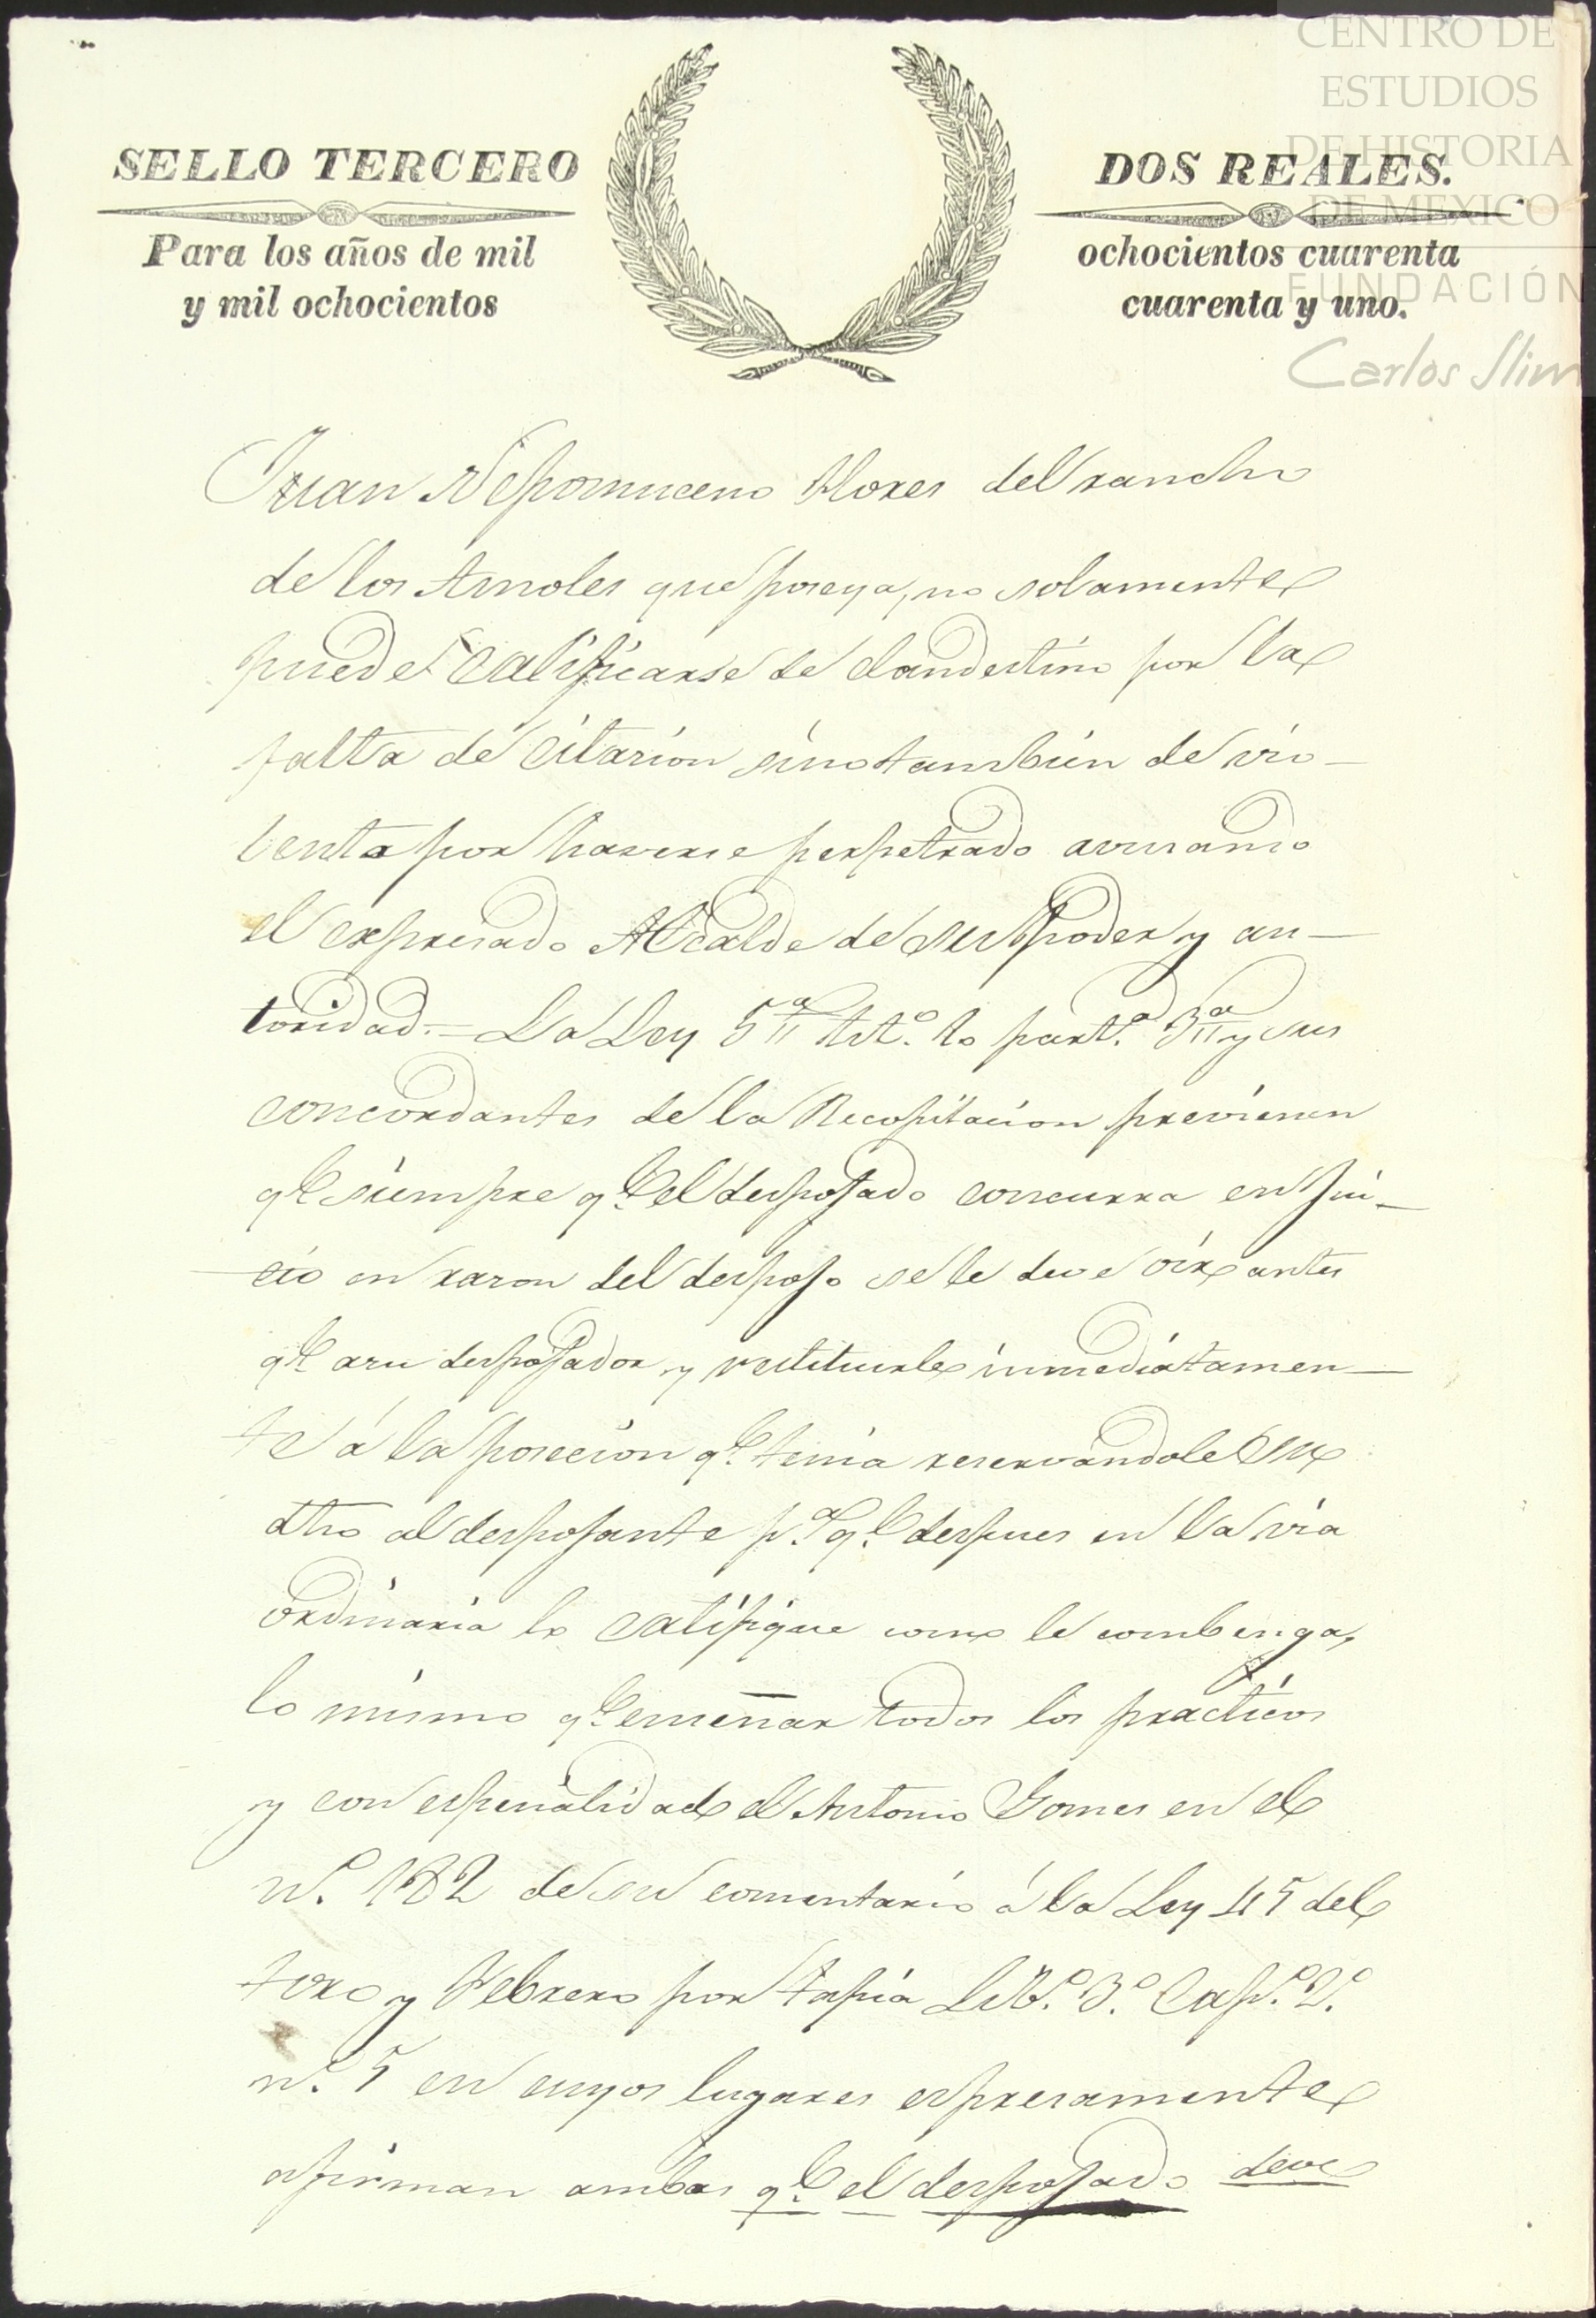 CENTRO DE
ESTUDIOS
DE HISTORIA
DE MEXICO
FUNDACIÓN
Carlos Slim
SELLO TERCERO
Para los años de mil
y mil ochocientos
DOS REALES.
ochocientos cuarenta
cuarenta y uno.
Juan Nepomuceno Flores del rancho
de los Amoles que poseya, no solamente
puede calificarse de clandestino por la
falta de citacion sino tambien de vio-
lento por haverse perpetrado avusando
el expresado Alcalde de su poder y au-
toridad. = La Ley 5ª tit.º 10 part.ª 3ª y sus
concordantes de la Recopilacion previenen
q.e siempre q.e el despojado concurra en jui-
cio en razon del despojo se le deve oir antes
q.e a su despojador y restituirle inmediatamen-
te á la posecion q.e tenia reservandole su
dro al despojante p.a q.e despues en la via
ordinaria lo califique como le combenga,
lo mismo q.e enseñan todos los practicos
y con especialidad el Antonio Gomes en el
n.º 182 de su comentario á la Ley 45 del
toro y Febrero por tapia Lib.º 3.º Cap.º 2.º
n.º 5 en cuyos lugares espresamente
afirman ambos q.e el despojado deve